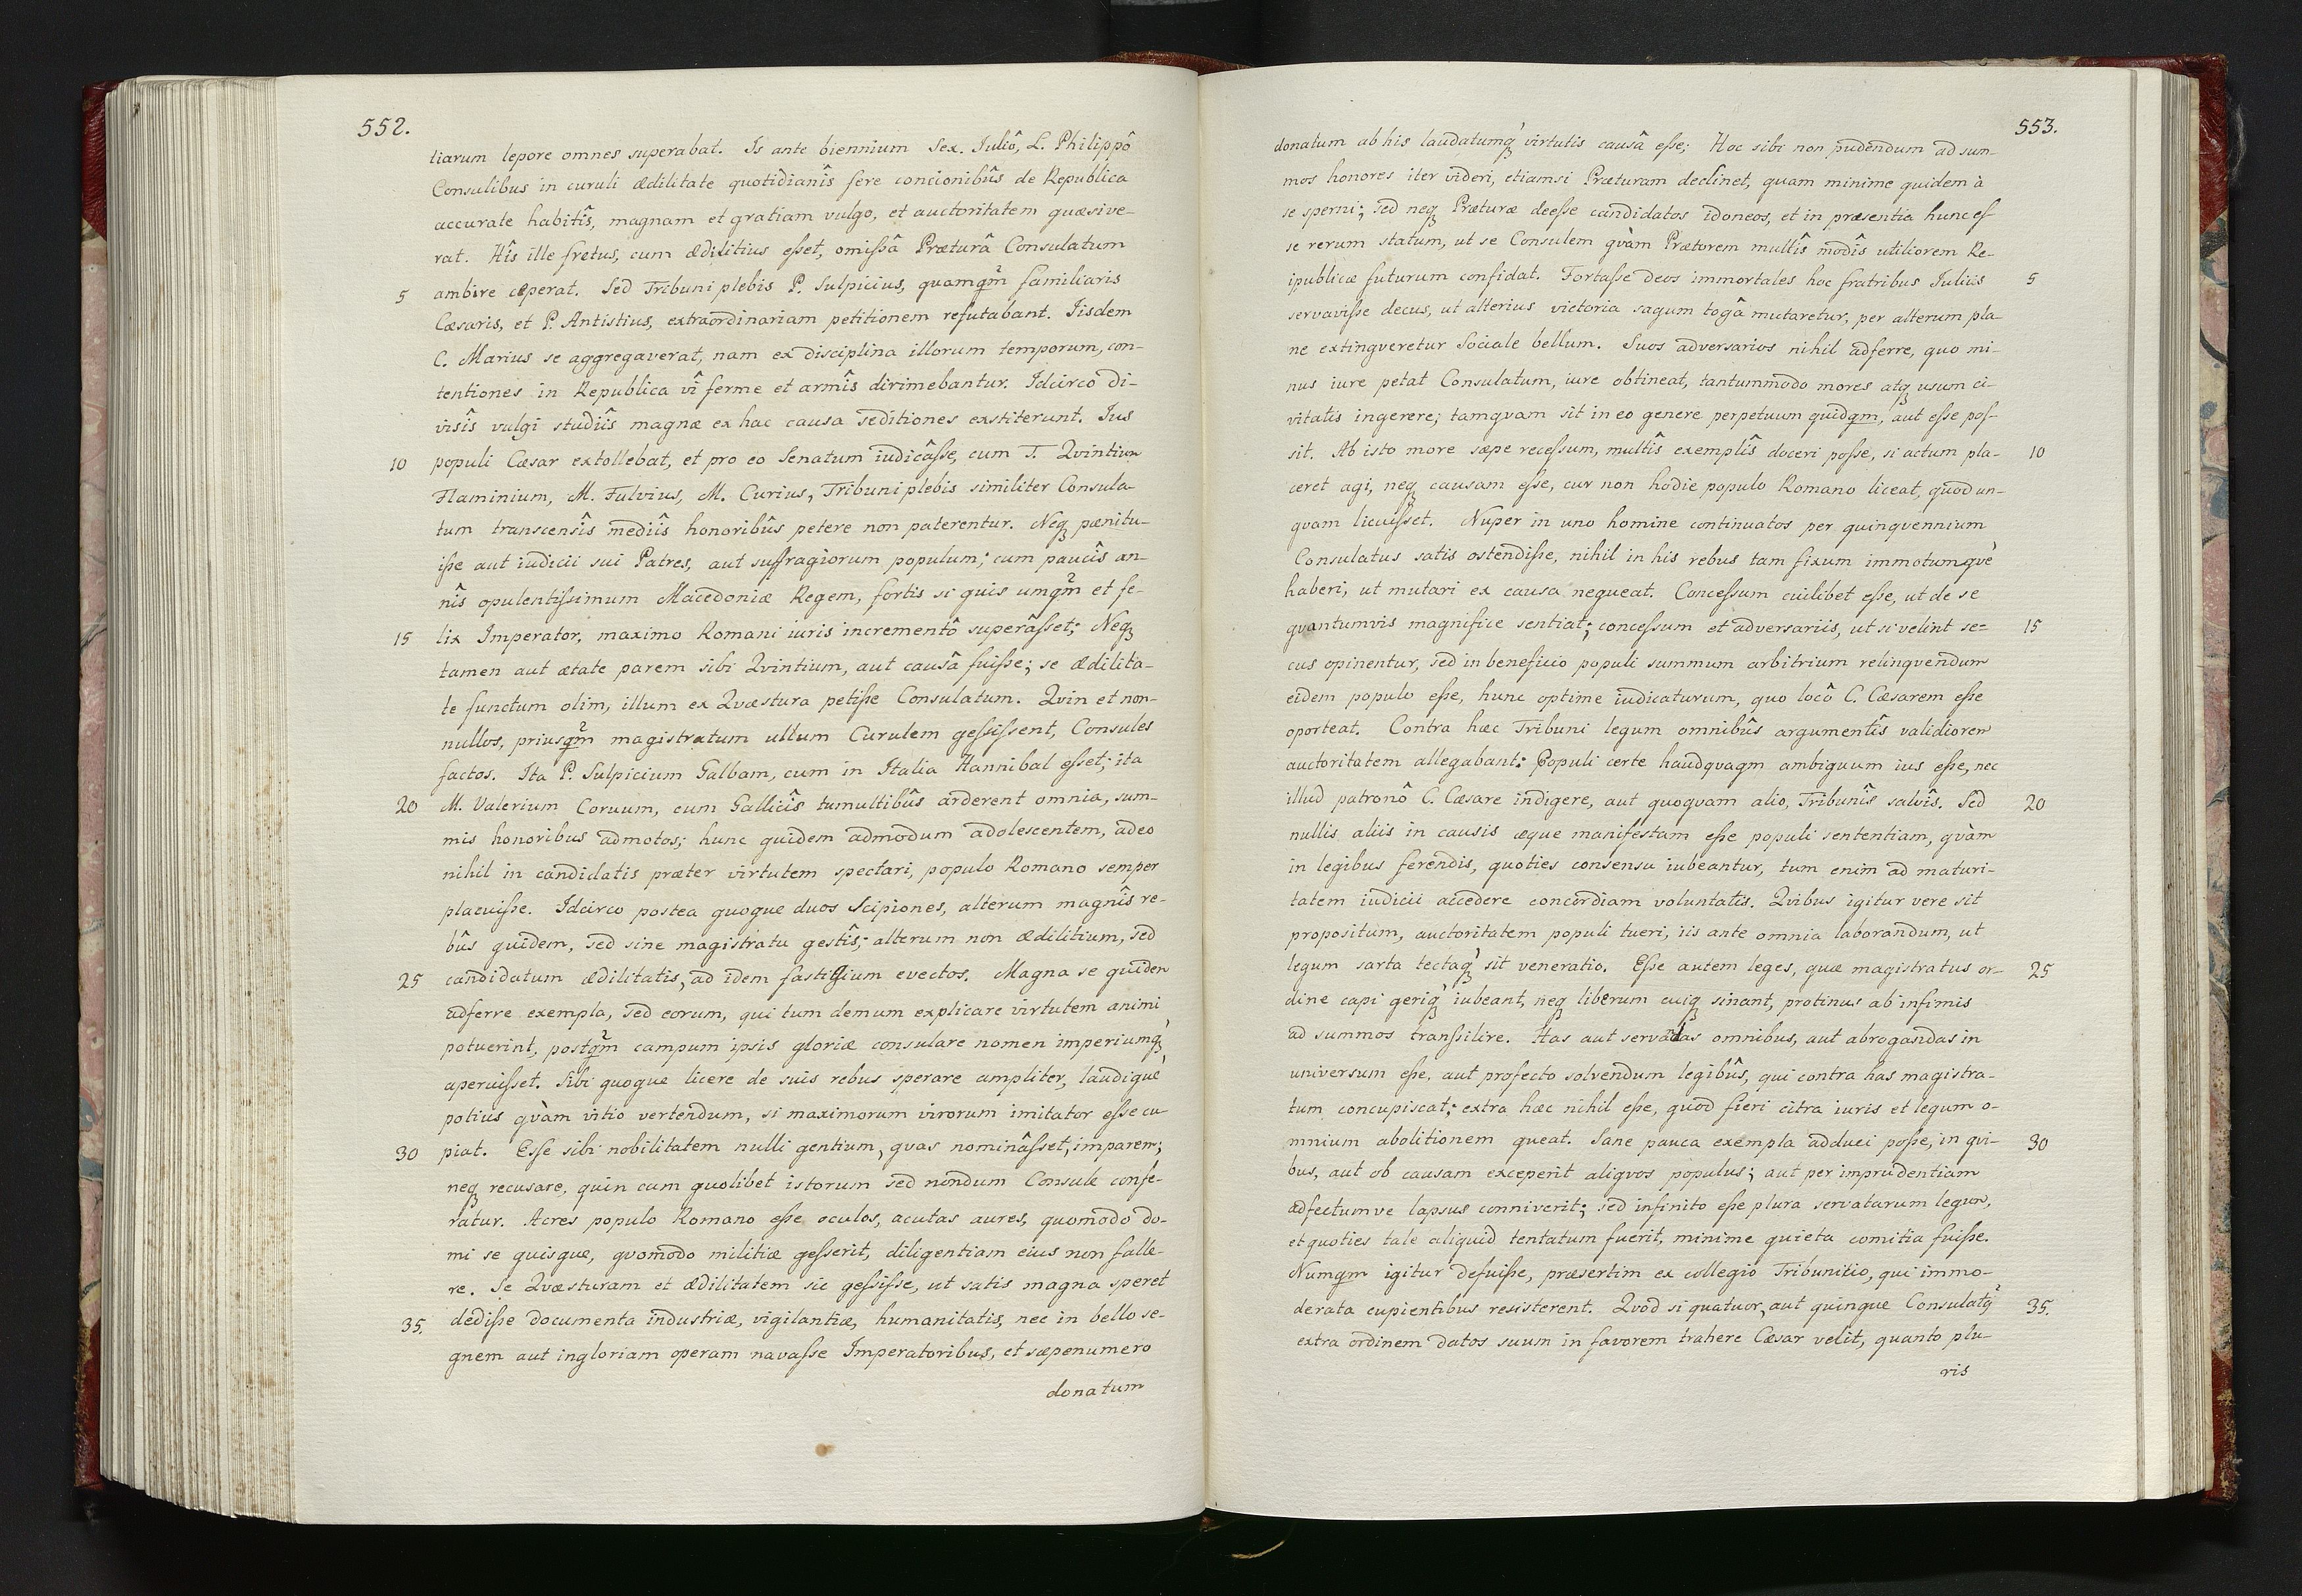 552.
tiarum lepore omnes superabat. Is ante biennium Sex. Iuliô, L. Philippô
Consulibus in curuli ædilitate quotidianîs fere concionibûs de Republica
accurate habitîs, magnam et gratiam vulgo, et auctoritatem quæsive-
rat. Hîs ille fretus, cum ædilitius eſset, omiſsâ Præturâ Consulatum
5 ambire cœperat. Sed Tribuni plebis P. Sulpicius, quamqm̃ familiaris
Cæsaris, et P. Antistius, extraordinariam petitionem refutabant. Iisdem
C. Marius se aggregaverat, nam ex disciplina illorum temporum, con-
tentiones in Republica vî ferme et armîs dirimebantur. Idcirco di-
visîs vulgi studiîs magnæ ex hac causa seditiones exstiterunt. Ius
10 populi Cæsar extollebat, et pro eo Senatum iudicâſse, cum T. Qvintium
Flaminium, M. Fulvius, M. Curius, Tribuni plebis similiter Consula-
tum transcensîs mediîs honoribûs petere non paterentur. Neqꝫ pænitu-
iſse aut iudicii sui Patres, aut suffragiorum populum; cum paucîs an-
nîs opulentiſsimum Macedoniæ Regem, fortis si quis umqm̃ et fe-
15 lix Imperator, maximo Romani iuris incrementô superâſset; Neqꝫ
tamen aut ætate parem sibi Qvintium, aut causâ fuiſse; se ædilita-
te functum olim, illum ex Qvæstura petiſse Consulatum. Qvin et non-
nullos, priusqm̃ magistratum ullum Curulem geſsiſsent, Consules
factos. Ita P. Sulpicium Galbam, cum in Italia Hannibal eſset; ita
20 M. Valerium Coruum, cum Gallicîs tumultibûs arderent omnia, sum-
mis honoribus admotos; hunc quidem admodum adolescentem, adeo
nihil in candidatis præter virtutem spectari, populo Romano semper
placuiſse. Idcirco postea quoque duos Scipiones, alterum magnîs re-
bûs quidem, sed sine magistratu gestîs; alterum non ædilitium, sed
25 candidatum ædilitatis, ad idem fastigium evectos. Magna se quidem
adferre exempla, sed eorum, qui tum demum explicare virtutem animi
potuerint, postqm̃ campum ipsis gloriæ consulare nomen imperiumqꝫ́
aperuiſset. Sibi quoque licere de suis rebus sperare ampliter, laudiqué
potius qvàm vitio vertendum, si maximorum virorum imitator eſse cu-
30 piat. Eſse sibi nobilitatem nulli gentium, qvas nominâſset, imparem;
neqꝫ recusare, quin cum quolibet istorum sed nondum Consule confe-
ratur. Acres populo Romano eſse oculos, acutas aures, quomodo do-
mi se quisque, qvomodo militiæ geſserit, diligentiam eius non falle-
re. Se Qvæsturam et ædilitatem sic geſsiſse, ut satis magna speret
35. dediſse documenta industriæ, vigilantiæ, humanitatis, nec in bello se-
gnem aut ingloriam operam navaſse Imperatoribus, et sæpenumero
donatum
553.
donatum ab his laudatumqꝫ́ virtutis causâ eſse; Hoc sibi non pudendum ad sum-
mos honores iter videri, etiamsi Præturam declinet, quam minime quidem à
se sperni; sed neqꝫ Præturæ deeſse candidatos idoneos, et in præsentia hunc eſ-
se rerum statum, ut se Consulem qvàm Prætorem multîs modîs utiliorem Re-
ipublicæ futurum confidat. Fortaſse deos immortales hoc fratribus Iuliis 5
servaviſse decus, ut alterius victoria sagum togâ mutaretur, per alterum pla-
ne extingveretur Sociale bellum. Suos adversarios nihil adferre, quo mi-
nus iure petat Consulatum, iure obtineat, tantummodo mores atqꝫ usum ci-
vitatis ingerere; tamqvam sit in eo genere perpetuum quidqm, aut eſse poſ-
sit. Ab isto more sæpe receſsum, multîs exemplîs doceri poſse, si actum pla- 10
ceret agi, neqꝫ causam eſse, cur non hodie populo Romano liceat, quod un-
qvam licuiſset. Nuper in uno homine continuatos per quinqvennium
Consulatus satis ostendiſse, nihil in his rebus tam fixum immotumqvè
haberi, ut mutari ex causa nequeat. Conceſsum cuilibet eſse, ut de se
qvantumvis magnifice sentiat; conceſsum et adversariis, ut si velint se= 15
cus opinentur, sed in beneficio populi summum arbitrium relinqvendum
eidem populo eſse, hunc optime iudicaturum, quo locô C. Cæsarem eſse
oporteat. Contra hæc Tribuni legum omnibûs argumentîs validiorem
auctoritatem allegabant: Populi certe haudqvaqm ambiguum ius eſse, nec
illud patronô C. Cæsare indigere, aut quoqvam alio, Tribunîs salvîs. Sed 20
nullis aliis in causis æque manifestam eſse populi sententiam, qvàm
in legibus ferendis, quoties consensu iubeantur, tum enim ad maturi-
tatem iudicii accedere concordiam voluntatis. Qvibus igitur vere sit
propositum, auctoritatem populi tueri, iis ante omnia laborandum, ut
legum sarta tectaqꝫ́ sit veneratio. Eſse autem leges, quæ magistratus or- 25
dine capi geriqꝫ́ iubeant, neqꝫ liberum cuiqꝫ sinant, protinus ab infimis
ad summos transsilire. Has aut servandas omnibus, aut abrogandas in
universum eſse, aut profecto solvendum legibûs, qui contra has magistra-
tum concupiscat; extra hæc nihil eſse, quod fieri citra iuris et legum o-
mnium abolitionem queat. Sane pauca exempla adduci poſse, in qvi- 30
bus, aut ob causam exceperit aliqvos populus; aut per imprudentiam
adfectumve lapsus conniverit; sed infinito eſse plura servatarum legum,
et quoties tale aliquid tentatum fuerit, minime quieta comitia fuiſse.
Numqm igitur defuiſse, præsertim ex collegio Tribunitio, qui immo-
derata cupientibus resisterent. Qvod si quatuor, aut quinque Consulatꝗ 35.
extra ordinem datos suum in favorem trahere Cæsar velit, quanto plu-
ris